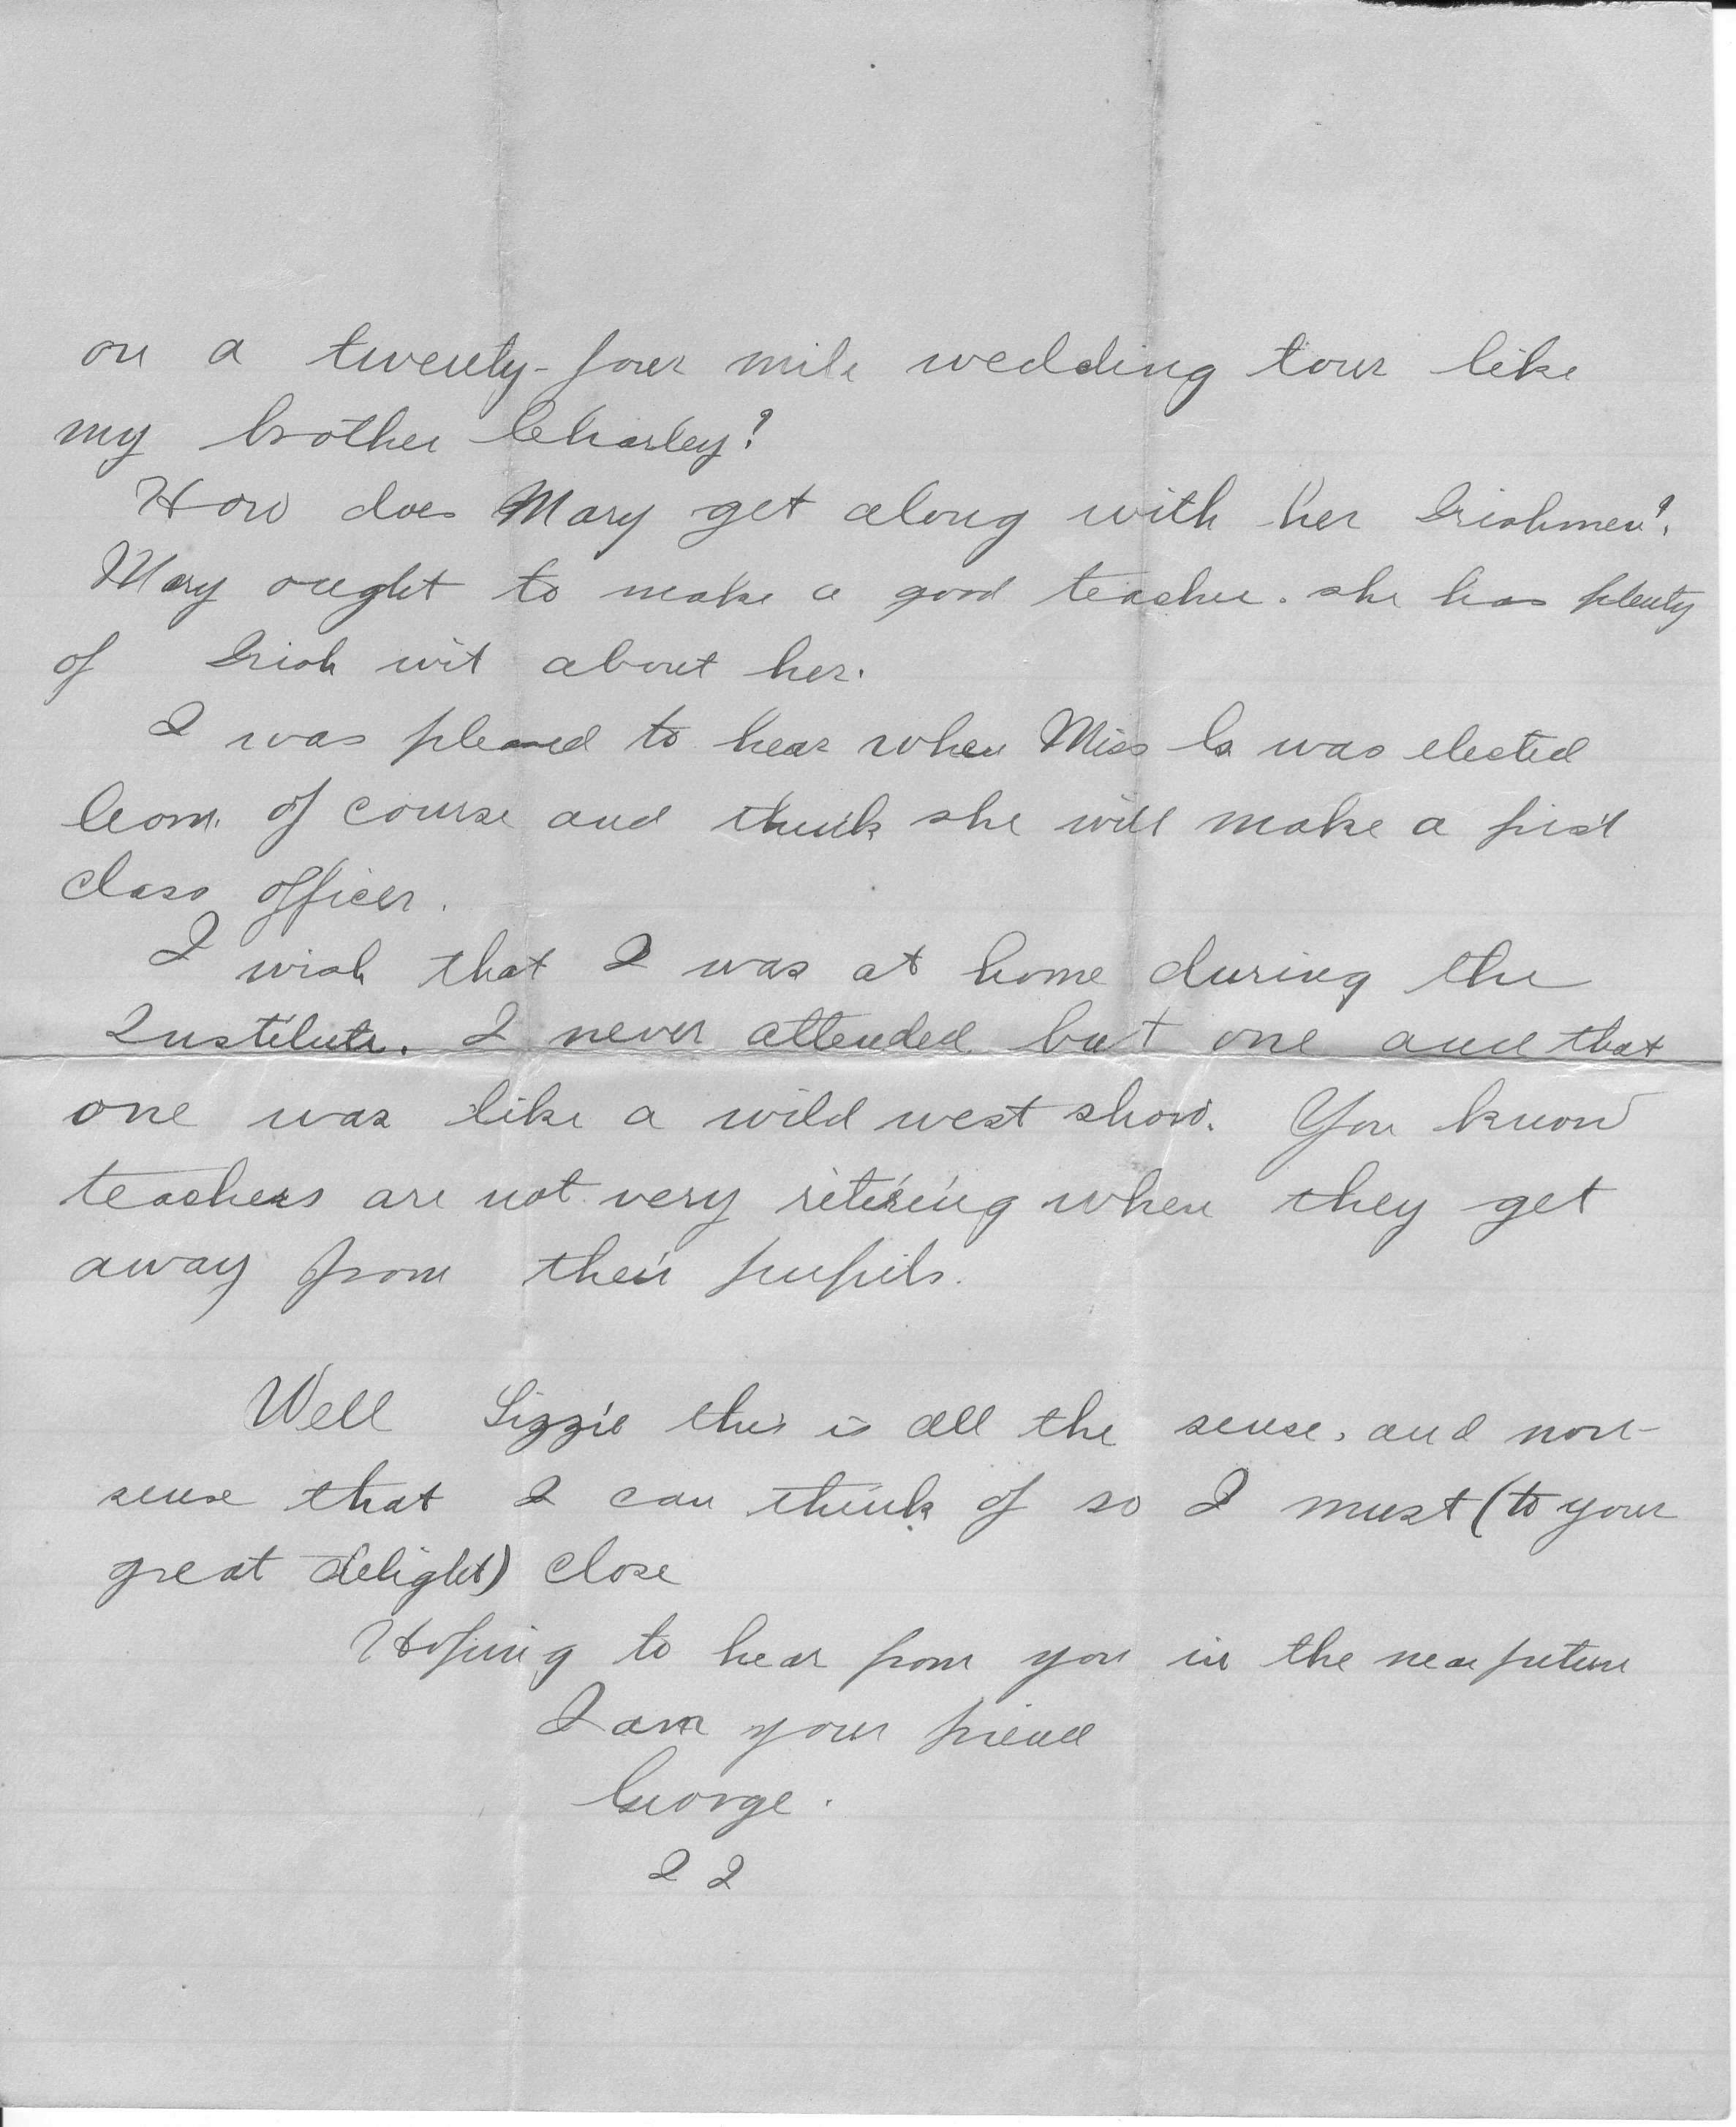 on a twenty-four mile wedding tour like
my brother Charley?
How does Mary get along with her Irishmen?
Mary ought to make a good teacher. she has plenty
of Irish wit about her.
I was pleased to hear when Miss was elected
Com. of course and think she will make a first
class officer.
I wish that I was at home during the
Institute. I never attended but one and that
one was like a wild west show. You know
teachers are not very retiring when they get
away from their pupils.
Well Lizzie this is all the sense, and non-
sense that I can think of so I must (to your
great delight) close
Hoping to hear from you in the near future
I am your friend
George.
22